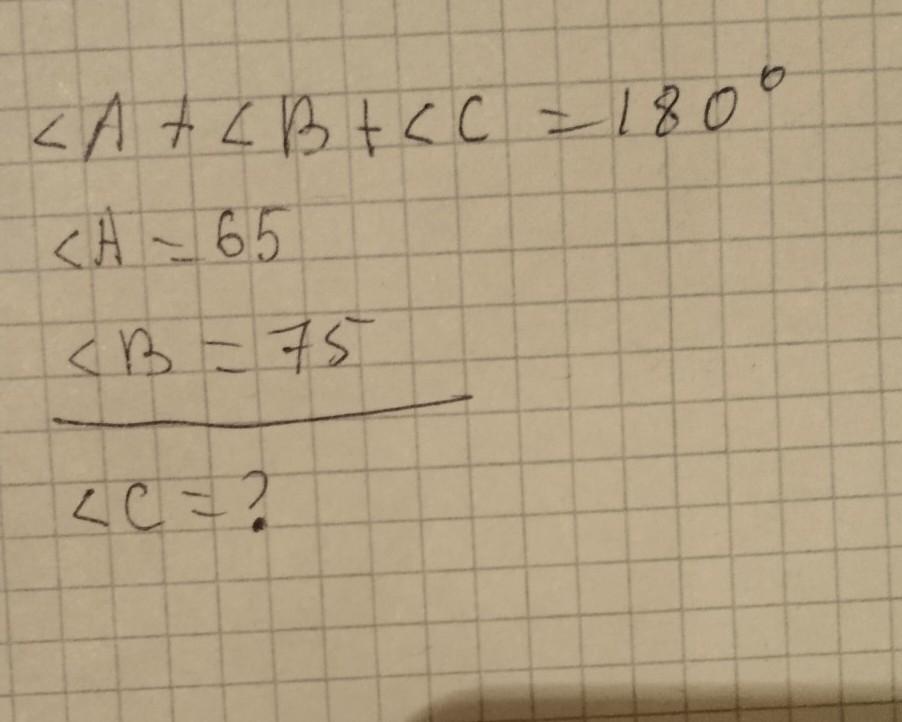 <A + <B + <C = 180°
<A = 65
<B = 75
<C = ?